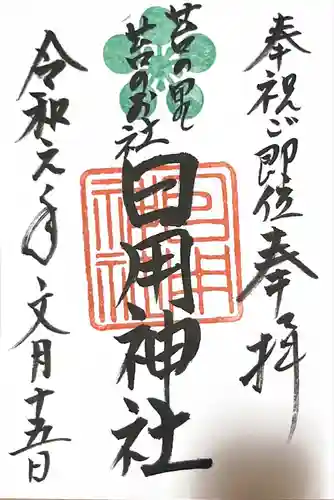 奉祝ご即位奉拝
苔の里
苔のお社
日用神社
日用神社
令和元年文月十五日